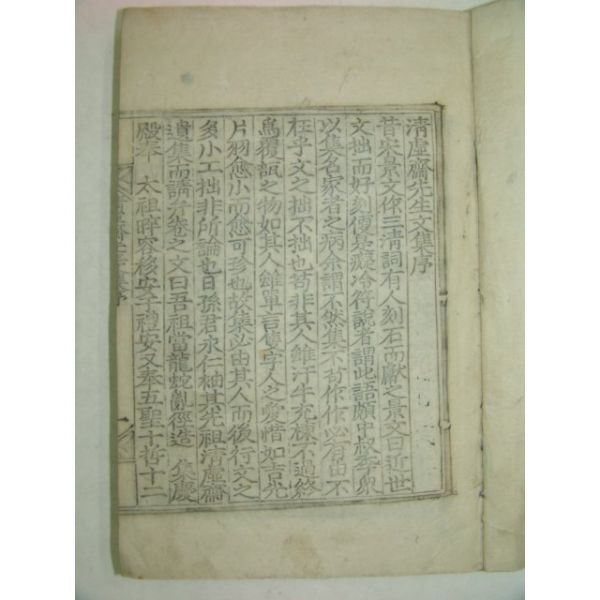 清虛齋先生文集序
昔宋景文作三清詞有人刻石而獻之景文曰近世
文拙而好刻便是癡冷符說者謂此語頗中叔季
以集名家者之病余謂不然集不苟作作必有由不
在乎文之拙不拙也苟非其人雖汗牛充棟不過終
爲覆瓿之物如其人雖單言隻字人之愛惜如吉光
片羽愈小而愈可珍也故集必由其人而後行文之
多小工拙非所論也日孫君永仁袖其先祖清虛齋
遺集而請弁卷之文曰吾祖當龍蛇亂徑造 集慶
殿奉 太祖晬容移安于禮安又奉五聖十哲十二